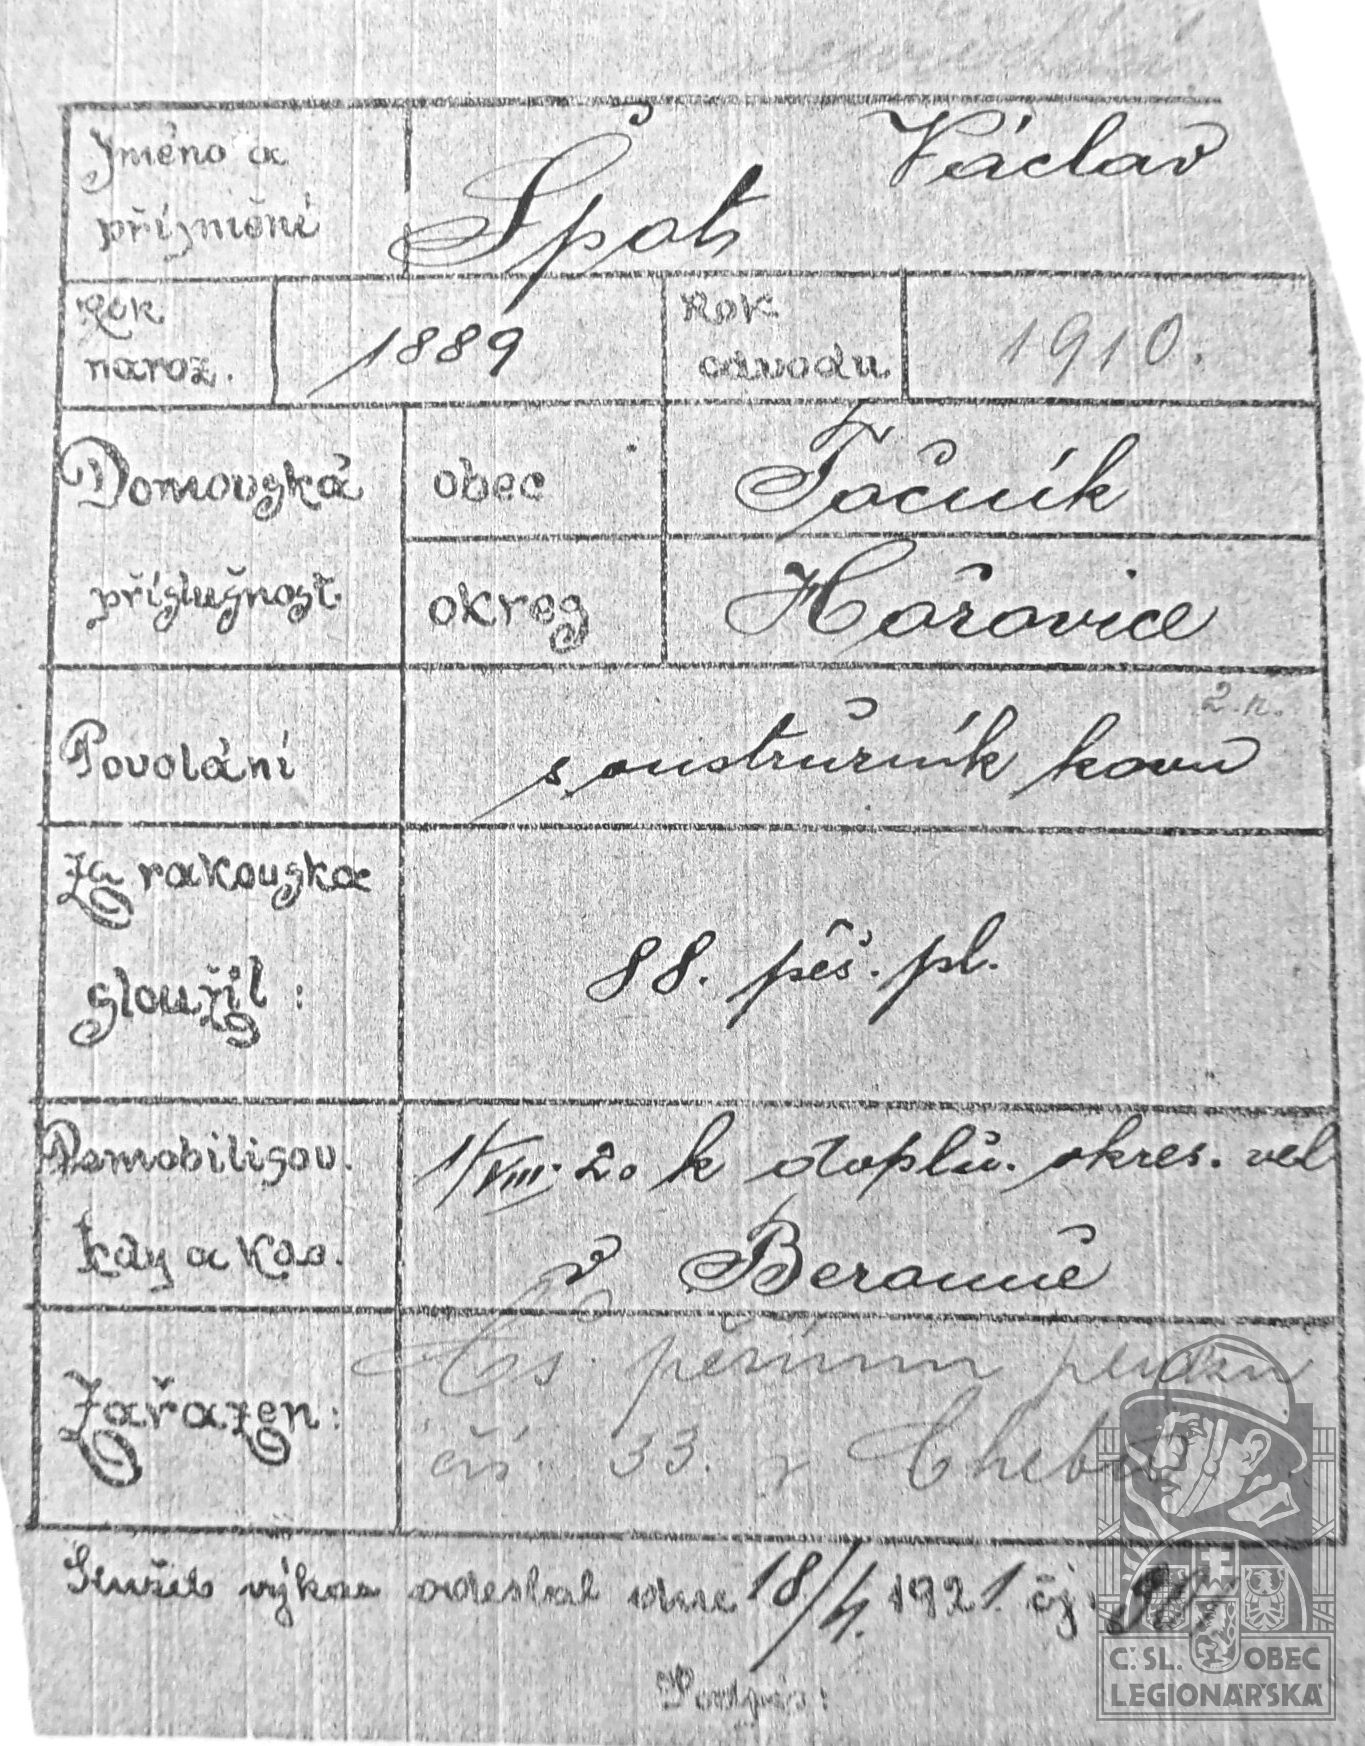 Jméno a
příjmění
Špot Václav
Rok
naroz.
1889
Rok
odvodu
1910.
Domovská
příslušnost
obec
Točník
okres
Hořovice
2.n.
Povolání
soustružník kovu
Za rakouska
sloužil:
88. pěš. pl.
Demobilisov.
kdy a kde.
1/VIII. 20 k doplň. okres. vel
v Berouně
Zařazen:
Čs. pěšímu pluku
čís. 33. v Chebu
Služeb výkaz odeslal dne 18/4. 1921. čj.
Podpis:
Č. SL. OBEC
LEGIONÁŘSKÁ